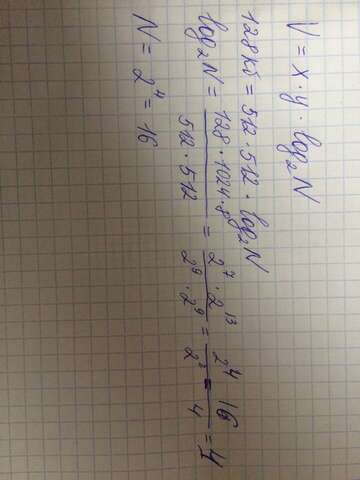 V = x · y · log₂N
128 Кб = 512 · 512 · log₂N
log₂N = 128 · 1024 · 8 / 512 · 512 = 2⁷ · 2¹³ / 2⁹ · 2⁹ = 2⁴ / 2² = 16 / 4 = 4
N = 2⁴ = 16